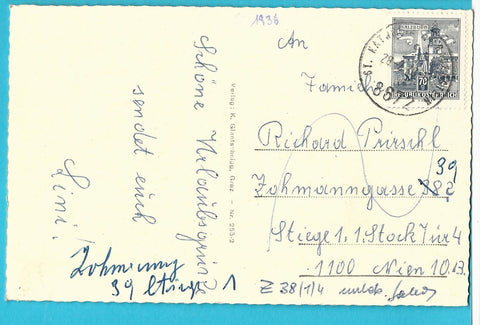 1936
Schöne Urlaubsgrüße
sendet euch
Lini!
Verlag: K. Glantschnigg, Graz - Nr. 253-2
An
Familie
Richard Pirschl
Zohmanngasse 38 39
Stiege 1, 1. Stock Tür 4
1100 Wien 10. B.
39 Stiege 1
Z 38/1/4 unbek.
ST. KATH
8672
SALZBURG
70
REPUBLIK ÖSTERREICH